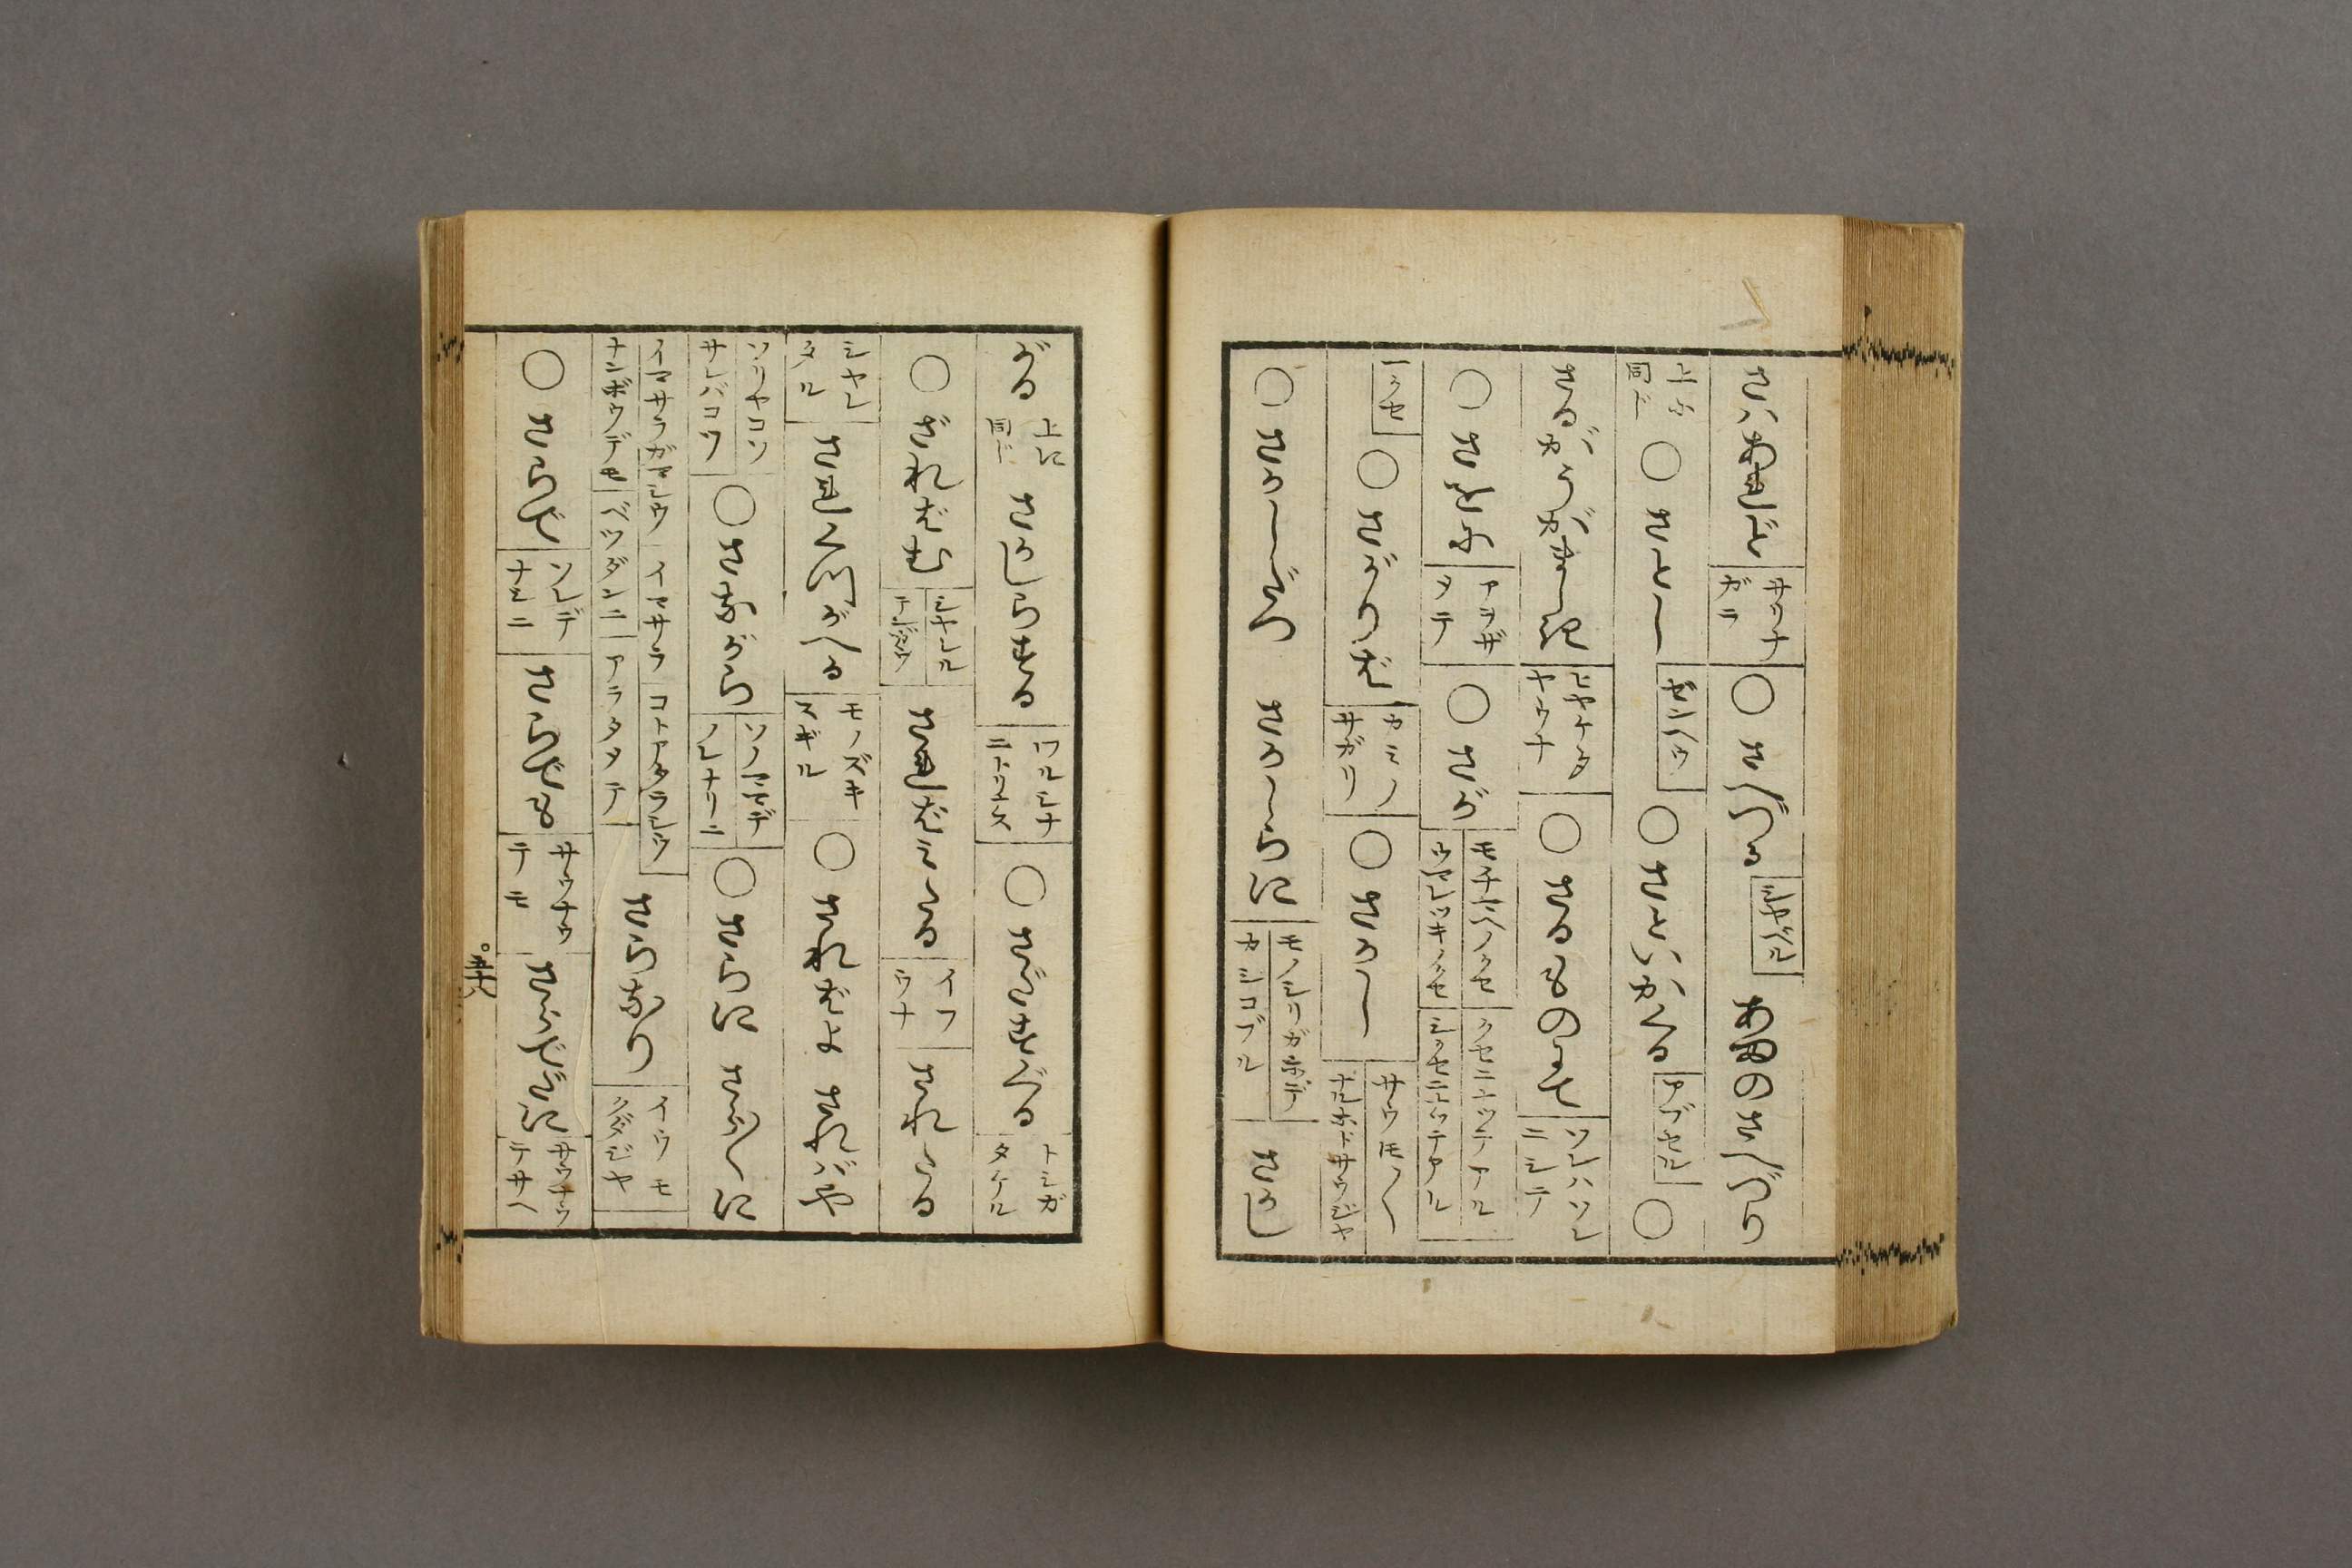 さはあれど サウナガラ ○さへづる シヤベル あめのさへづり
上に同じ ○さと〳〵 ザンバウ ○さといかくる アブセル ○
さるがうがましき ドウケタヤウナ ○さるものにて ソレハソレニシテ
○さをなる アヲザメテ ○さが モチマヘノクセ ウマレツキノクセ クセニナツテアル シクセニナツテアル
一クセ ○さがりば カミノサガリ ○さか〳〵 サウモノ〳〵 ナルホドサウジヤ
○さか〳〵しら さか〳〵しらに モノシリガホデ カシコブル さかし
がる 上に同じ さかしらする ワルシナニトリナス ○さだすぐる トシガタケル
○ざればむ シヤレル テンガウ さればみたる イフウナ されたる
シヤレタル されくつがへる モノズキスギル ○さればよ さればや
ソリヤコソ サレバコソ ○さながら ソノママデ ソレナリニ ○さらに さら〳〵に
イマサラガマシウ イマサラ コトアタラシウ ナンボウデモ ベツダンニ アラタメテ さらなり イウモクダジヤ
○さらで ソレデナシニ さらでも サウナウテモ さらでだに サウナウテサヘ